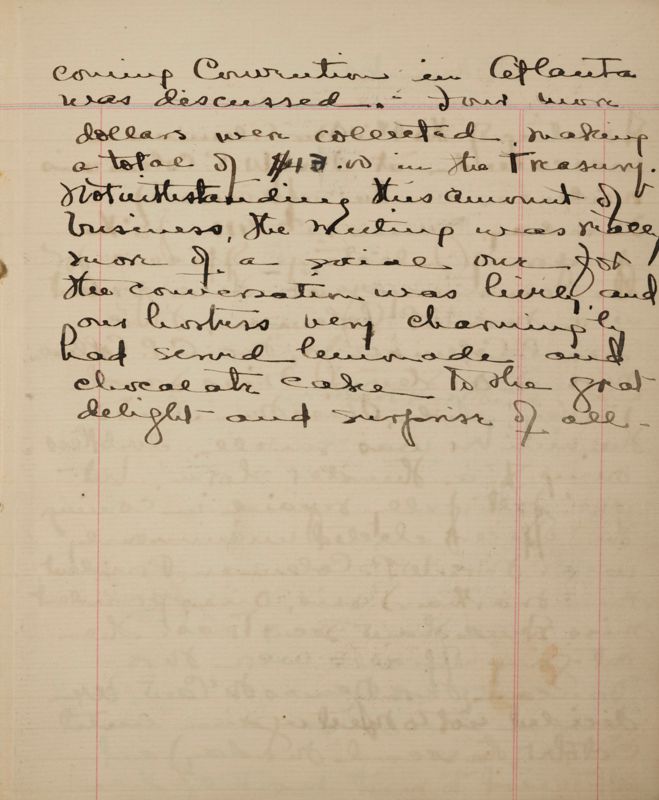 coming Convention in Atlanta
was discussed. - Four more
dollars were collected, making
a total of $13.00 in the Treasury.
Notwithstanding this amount of
business, the meeting was really
more of a social one for
the conversation was lively, and
our hostess very charmingly
had served lemonade and
chocalate cake to the great
delight and surprise of all -